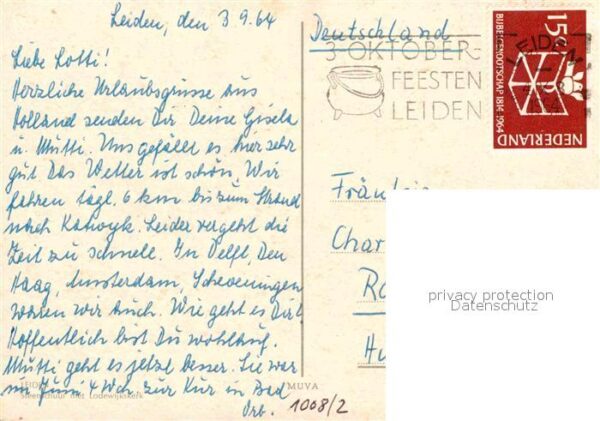 Leiden, den 3.9.64
Liebe Lotti!
Herzliche Urlaubsgrüsse aus
Holland senden Dir Deine Gisela
u. Mutti. Uns gefällt es hier sehr
gut Das Wetter ist schön. Wir
fahren tägl. 6 km bis zum Strand
nach Katwyk. Leider vergeht die
Zeit zu schnell. In Delft, Den
Haag, Amsterdam, Scheveningen
waren wir auch. Wie geht es Dir?
Hoffentlich bist Du wohlauf.
Mutti geht es jetzt besser. Sie war
im Juni 4 Wch. zur Kur in Bad
Orb.
LEIDEN
Steenschuur met Lodewijkskerk
MUVA
1008/2
Deutschland
3 OKTOBER-
FEESTEN
LEIDEN
LEIDEN
1964
15c
BIJBELGENOOTSCHAP 1814 1964
NEDERLAND
Fräulein
Char
Hu
privacy protection
Datenschutz